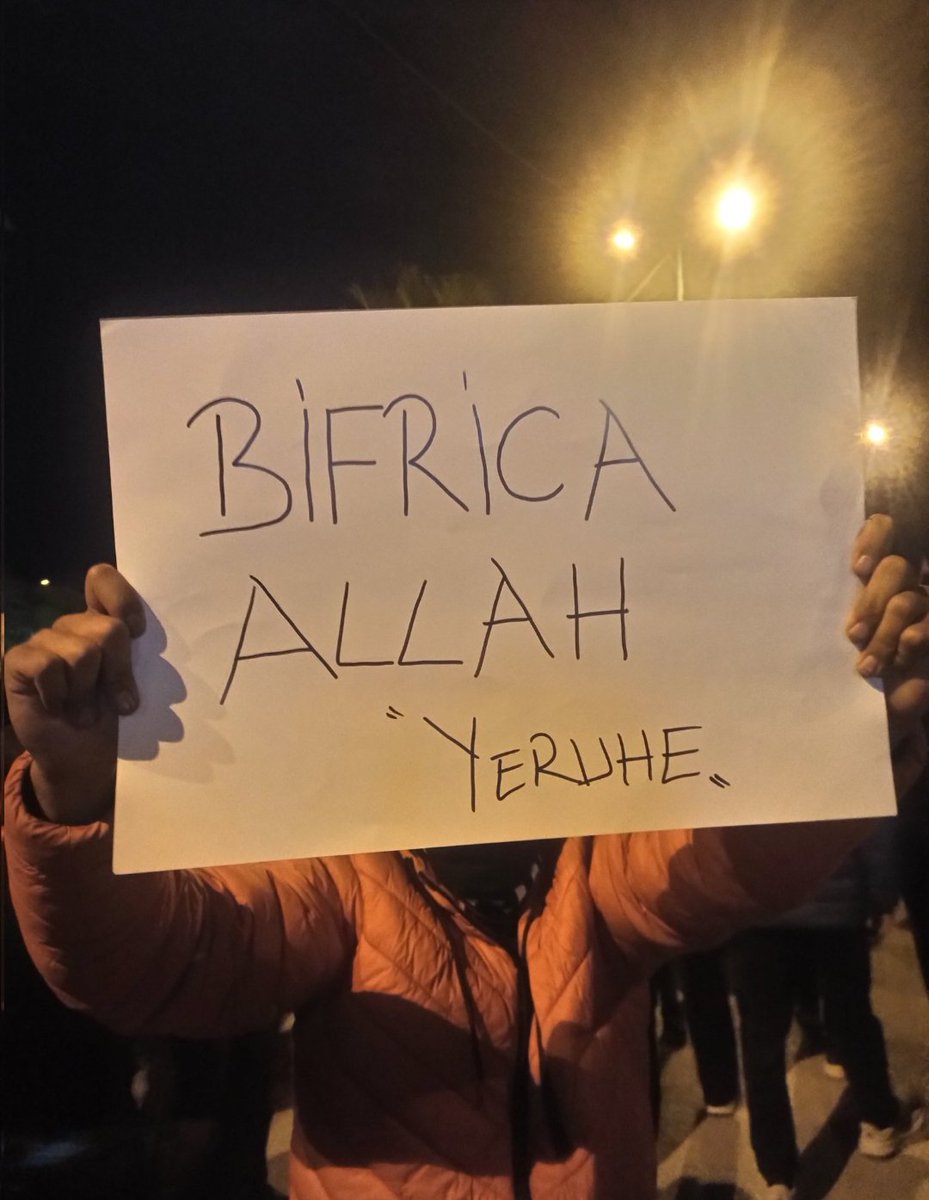 BİFRİCA
ALLAH
"YERUHE„